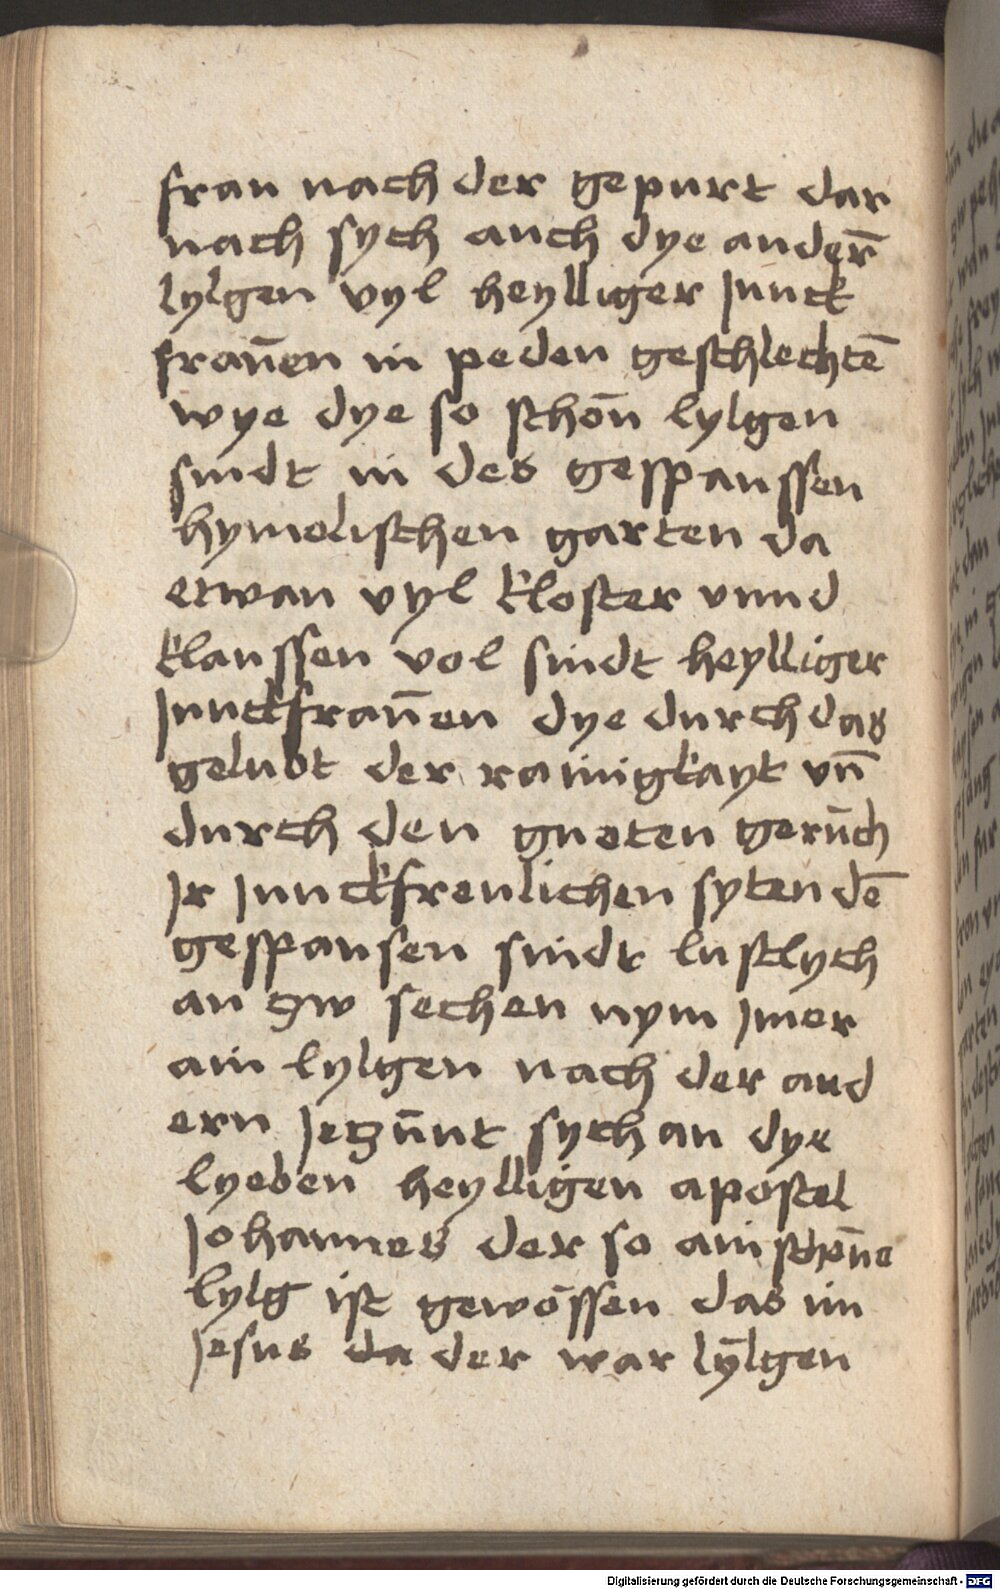 frau nach der gepurt dar
nach sych auch dye ander̄
lylgen vyl heylliger Junck
fraūen in peden geschlechtē
wye dye so schōn lylgen
sindt in des gespanssen
hymelischen garten da
etwan vyl kloster vnnd
klaussen vol sindt heylliger
Junckfraūen dye durch das
gelubt der rainigkayt vn̄
durch den gueten gerūch
Jr Junckfreulichen syten dē
gespansen sindt lustlych
an zw sechen nym Jmer
ain lylgen nach der and
ern Jetzūnt sych an dye
lyeben heylligen apostel
Johannes der so ain schōne
lylg ist gewössen das im
Jesus da der war lÿlgen
Digitalisierung gefördert durch die Deutsche Forschungsgemeinschaft - DFG